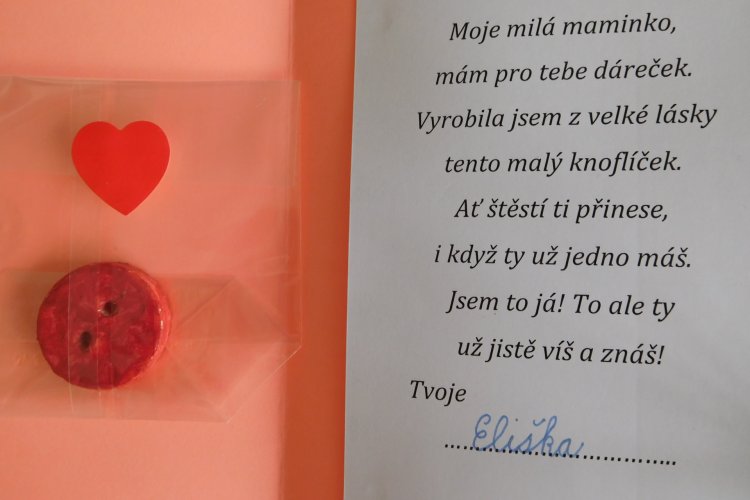 Moje milá maminko,
mám pro tebe dáreček.
Vyrobila jsem z velké lásky
tento malý knoflíček.
Ať štěstí ti přinese,
i když ty už jedno máš.
Jsem to já! To ale ty
už jistě víš a znáš!
Tvoje
Eliška